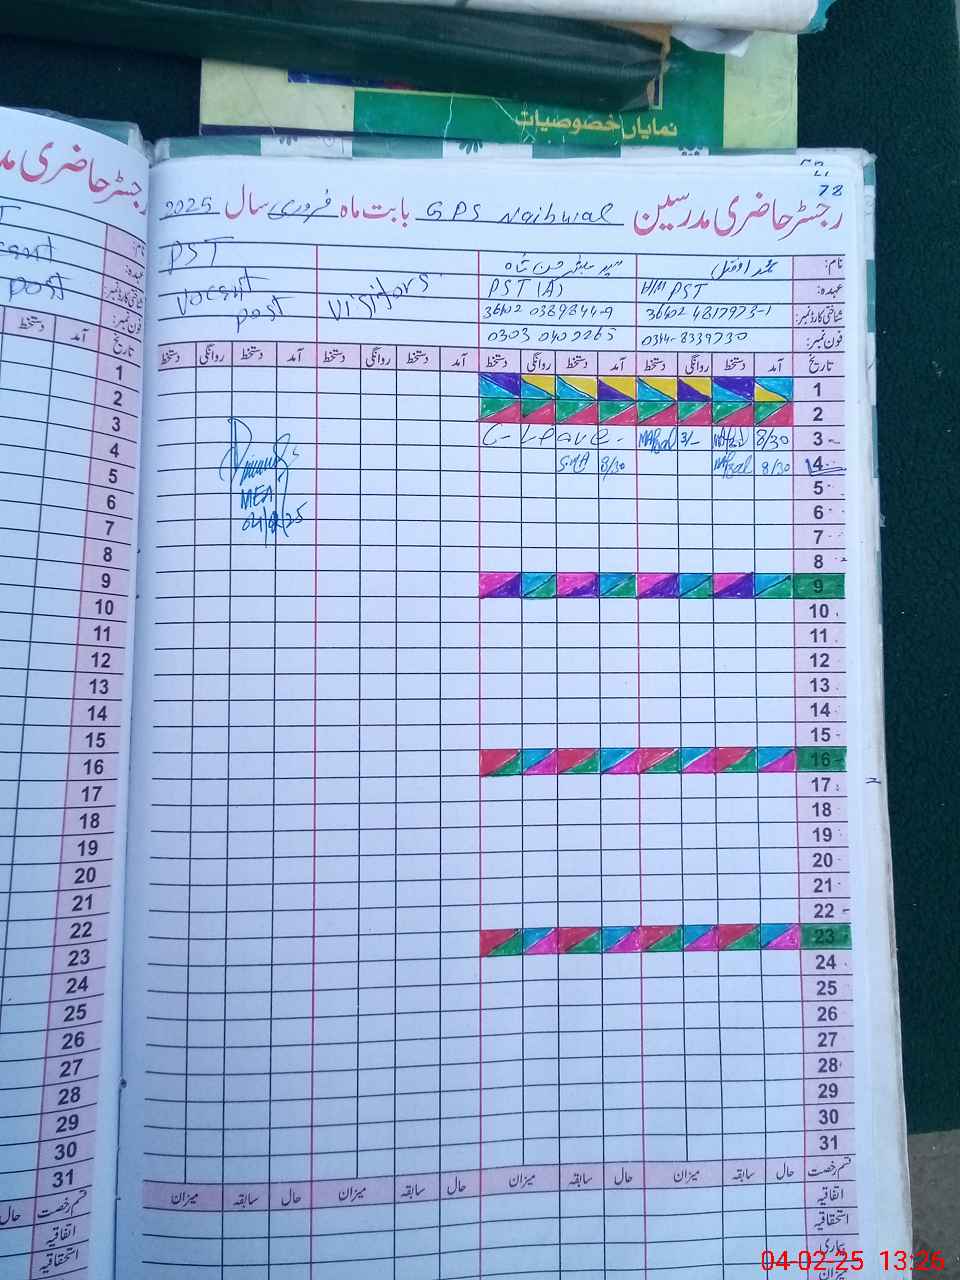 نمایاں خصوصیات
72
رجسٹر حاضری مدرسین GPS Naibwal بابت ماہ فروری سال 2025
نام:
PST
عہدہ: H/M PST PST (A)
Visitors
Vacant post
شناختی کارڈ نمبر: 36402 4817973-1 36402 0389844-9
فون نمبر: 0344-8339730 0303 0402265
تاریخ آمد دستخط روانگی دستخط آمد دستخط روانگی دستخط آمد دستخط روانگی دستخط آمد دستخط روانگی دستخط
1
2
3 8/30 C-Leave
4 8/30 SMA 8/30
5
MEA
04/02/25
6
7
8
9
10
11
12
13
14
15
16
17
18
19
20
21
22
23
24
25
26
27
28
29
30
31
قسم رخصت حال سابقہ میزان حال سابقہ میزان حال سابقہ میزان حال سابقہ میزان
اتفاقیہ
استحقاقیہ
بیماری
میزان
رجسٹر حاضری
نام:
عہدہ:
post
شناختی کارڈ نمبر:
فون نمبر:
تاریخ آمد دستخط
1
2
3
4
5
6
7
8
9
10
11
12
13
14
15
16
17
18
19
20
21
22
23
24
25
26
27
28
29
30
31
قسم رخصت حال
اتفاقیہ
استحقاقیہ
04-02-25 13:26